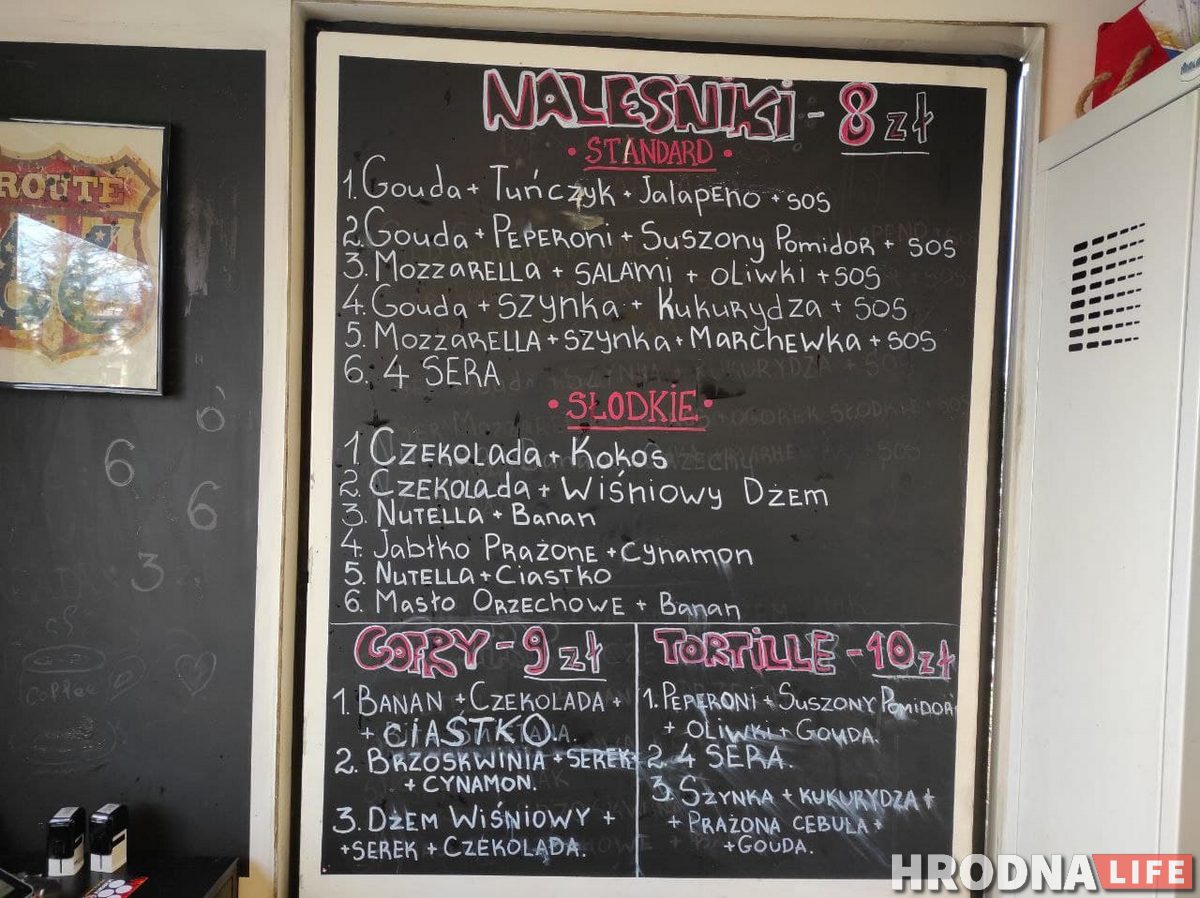 ROUTE
6
6
6
3
COFFEE
NALEŚNIKI - 8 zł
• STANDARD •
1. Gouda + Tuńczyk + Jalapeno + sos
2. Gouda + Peperoni + Suszony Pomidor + sos
3. Mozzarella + salami + oliwki + sos
4. Gouda + szynka + Kukurydza + sos
5. Mozzarella + szynka + Marchewka + sos
6. 4 SERA
• SŁODKIE •
1 Czekolada + Kokos
2. Czekolada + Wiśniowy Dżem
3. Nutella + Banan
4. Jabłko Prażone + Cynamon
5. Nutella + Ciastko
6. Masło Orzechowe + Banan
GOFRY - 9 zł
1. Banan + Czekolada +
+ CIASTKO
2. Brzoskwinia + serek
+ cynamon.
3. Dżem Wiśniowy +
+ serek + Czekolada.
TORTILLE - 10 zł
1. Peperoni + Suszony Pomidor
+ oliwki + Gouda.
2. 4 SERA.
3. Szynka + kukurydza +
+ Prażona cebula +
+ Gouda.
HRODNA LIFE